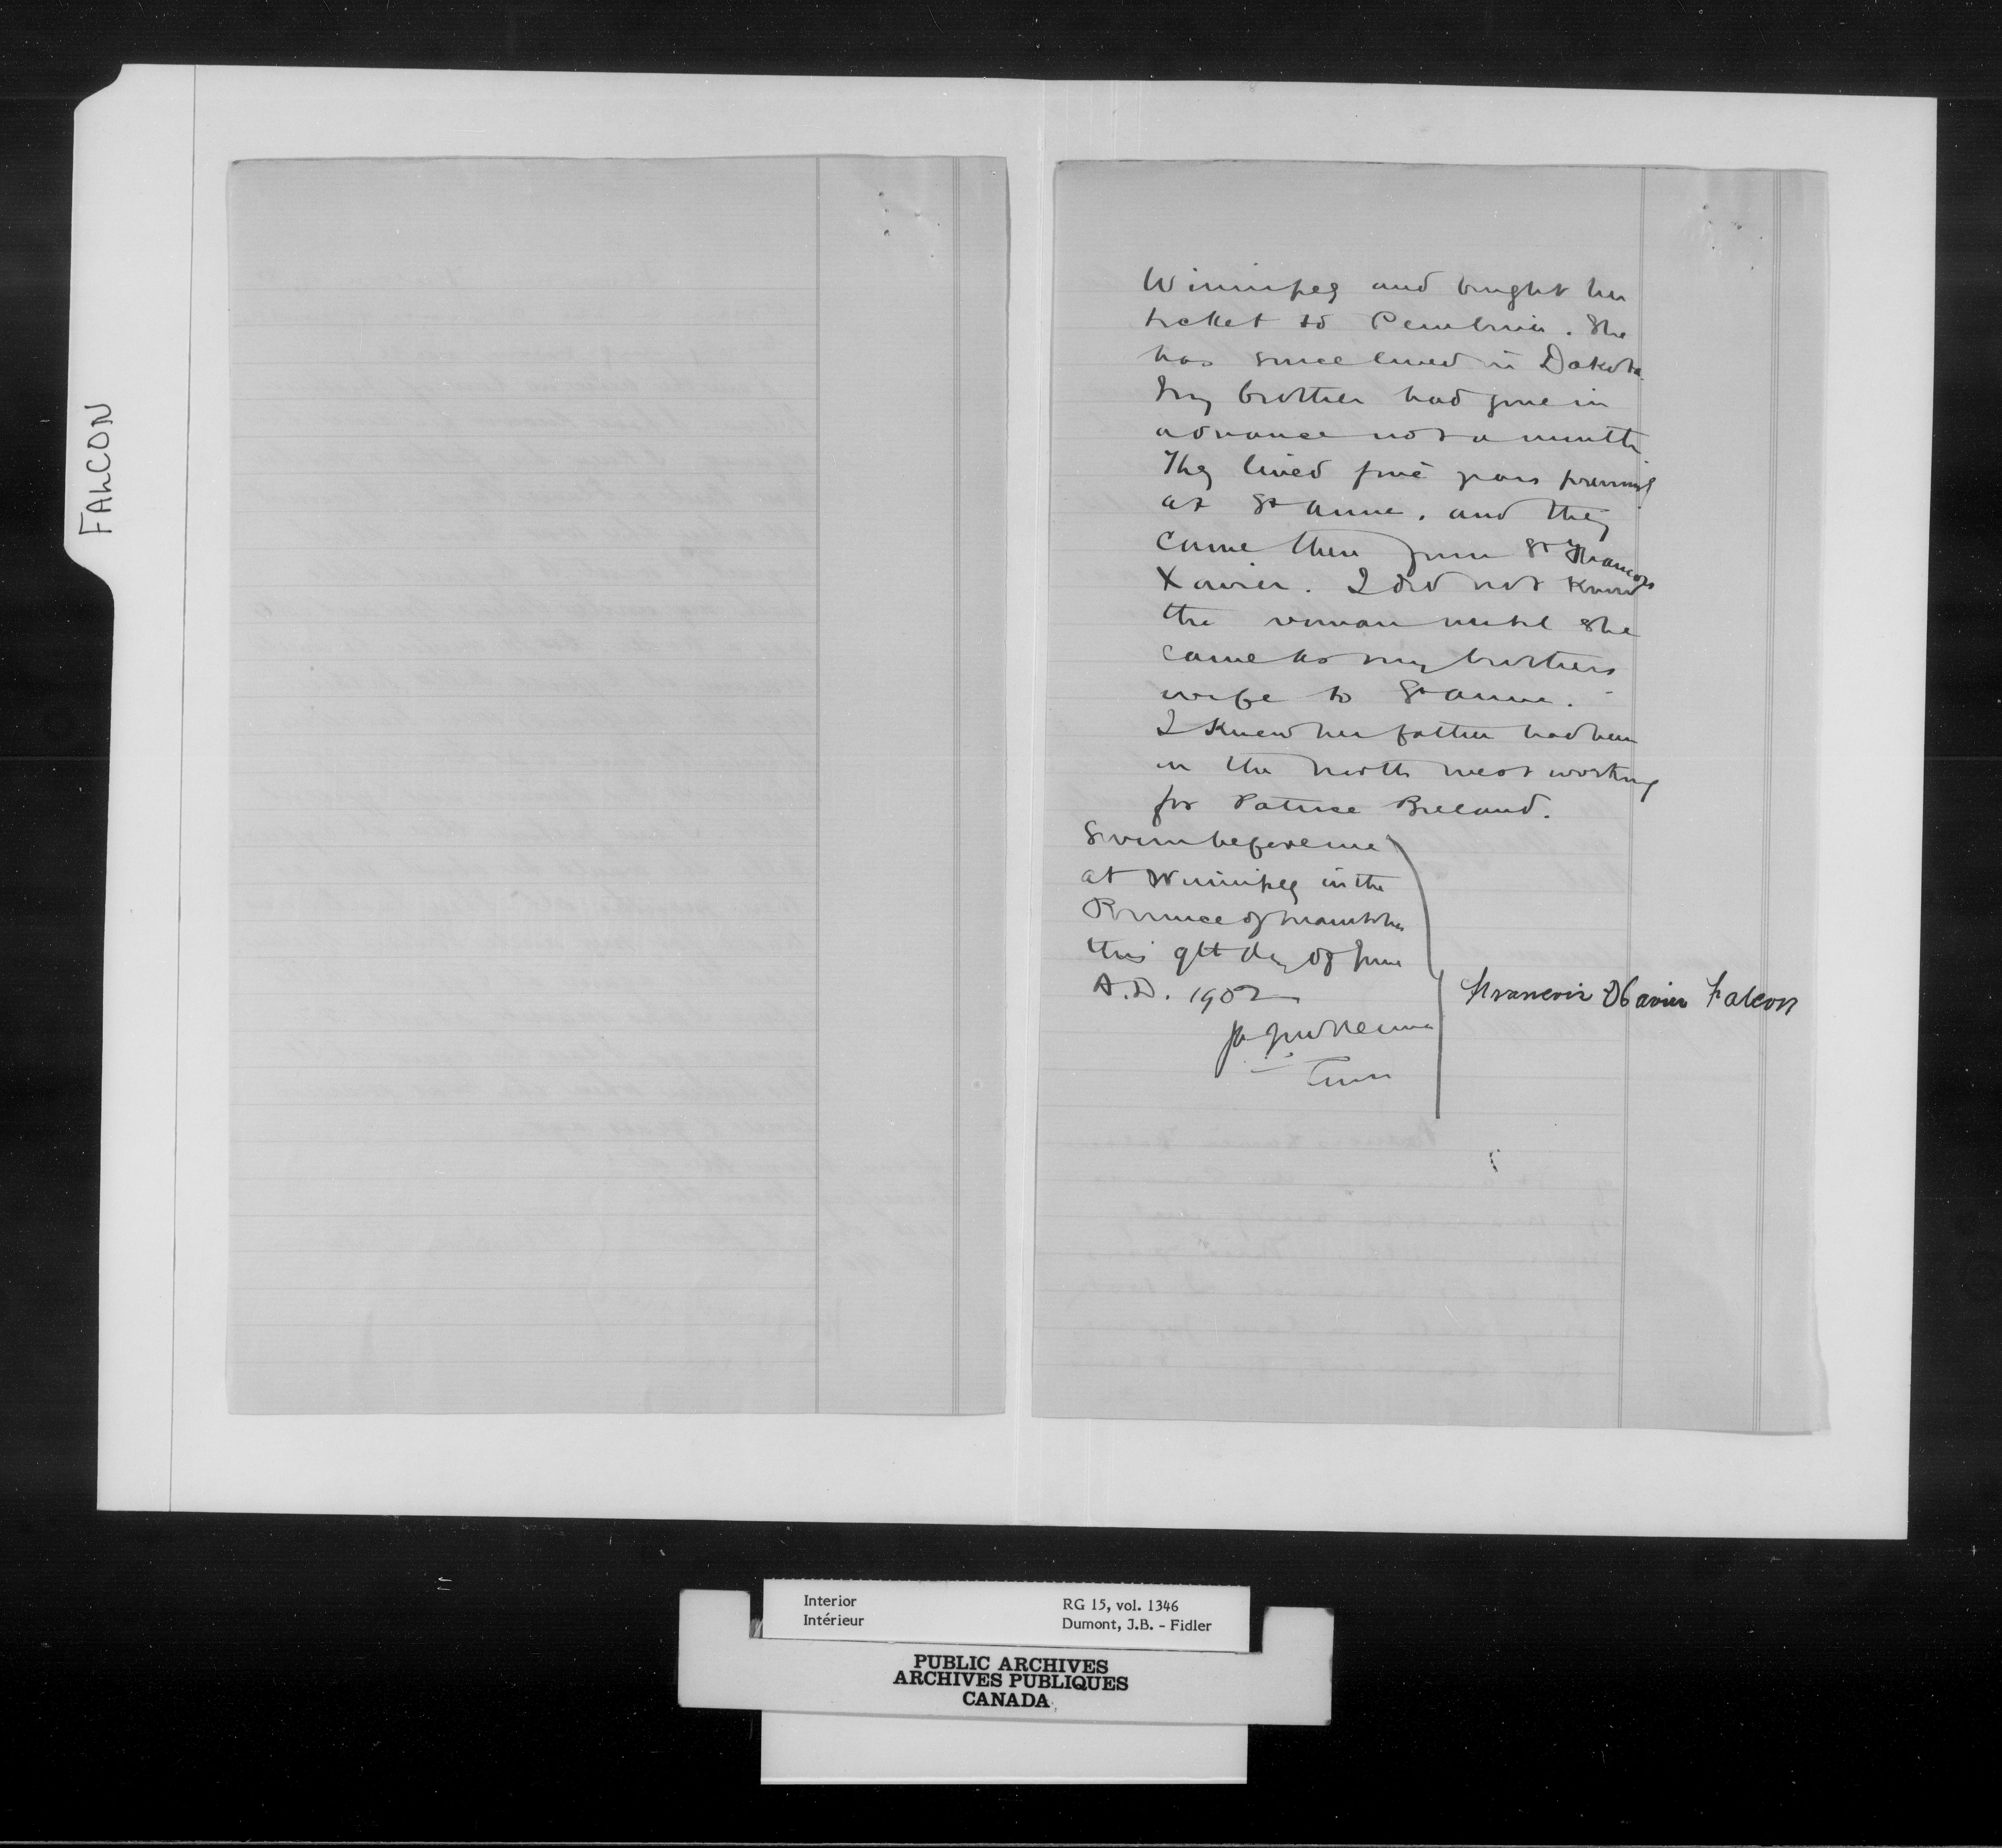 FALCON
Winnipeg and bought her
ticket to Pembina. She
has since lived in Dakota.
My brother had gone in
advance not a month
They lived five years previously
at St Anne, and they
came there from St Francois
Xavier. I did not know
the woman until she
came as my brothers
wife to St Anne.
I knew her father had been
in the North West working
for Patrice Breland.
Sworn before me
at Winnipeg in the
Province of Manitoba
this 9th day of June
A.D. 1902
Francois Xavier Falcon
Interior
Intérieur
RG 15, vol. 1346
Dumont, J.B. - Fidler
PUBLIC ARCHIVES
ARCHIVES PUBLIQUES
CANADA